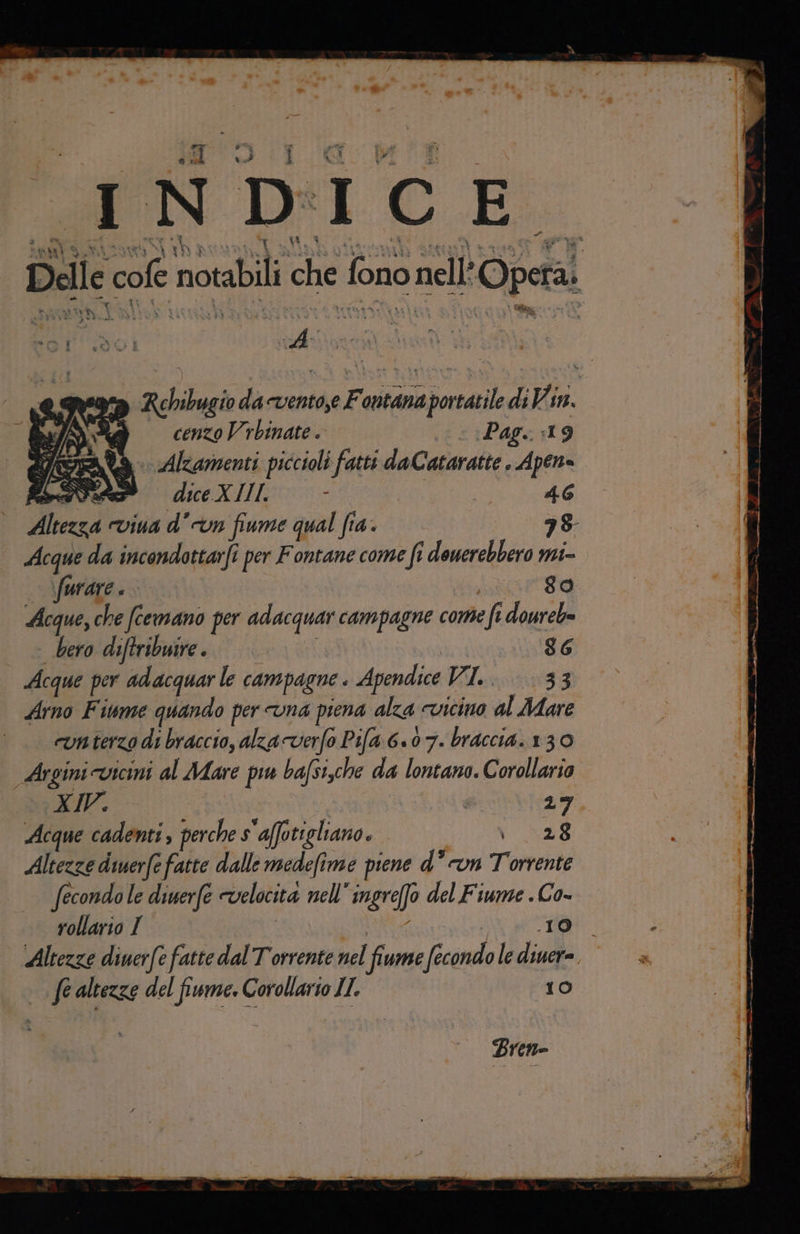 INDICE
Delle cose notabili che sono nell'Opera.
A
Rchibugio da vento, e Fontana portatile di Vin.
cenzo Vrbinate. Pag. 19
Alzamenti piccioli fatti da Cataratte. Apen-
dice XIII. 46
Altezza viua d'vn fiume qual sia. 78
Acque da incondottarsi per Fontane come si douerebbero mi-
surare. 80
Acque, che scemano per adacquar campagne come si doureb-
bero distribuire. 86
Acque per adacquar le campagne. Apendice VI. 33
Arno Fiume quando per vna piena alza vicino al Mare
vn terzo di braccio, alza verso Pisa 6. ò 7. braccia. 130
Argini vicini al Mare piu bassi, che da lontano. Corollario
XIV. 27
Acque cadenti, perche s'assotigliano. 28
Altezze diuerse fatte dalle medesime piene d'vn Torrente
secondo le diuerse velocità nell'ingresso del Fiume. Co-
rollario I 10
Altezze diuerse fatte dal Torrente nel fiume secondo le diuer-
se altezze del fiume. Corollario II. 10
Bren-